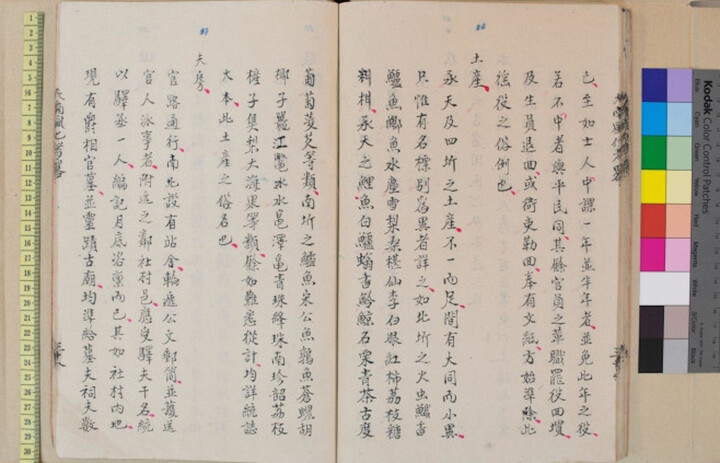 己至如士人中課一年並半年者並免此年之役
若不中者與平民同其餘官員之革職罷役回壜
及生員退回或衙吏勒回奉有文紙方始準除此
徭役之俗例也
土産
承天及四圻之土産不一而足間有大同而小異
只惟有名標別爲異者詳之如北圻之火虫鱸
鱸魚鄉魚水塵雪梨桑椹仙李白眼紅柿荔枝糖
料柑承天之鯉魚白鱸鯨石栗青茶古度
葡萄菱芡等類南圻之鱸魚呆公魚鶴魚蒼螺胡
椰子鼉江鱉水水黽澤龜青珠絳珠南珍韶荔枝
榷子隻梨大海果等類餘如難悉從計均詳統誌
大本此土産之俗名也
夫房
官路通行南北設有站舍輪遞公文郵筒並護送
官人派事者附近之鄰社村邑應受驛夫干名統
以驛丞一人編記月底咨稟而已其如社村内地
現有爵相官墓並靈蹟古廟均準給墓夫祠夫數